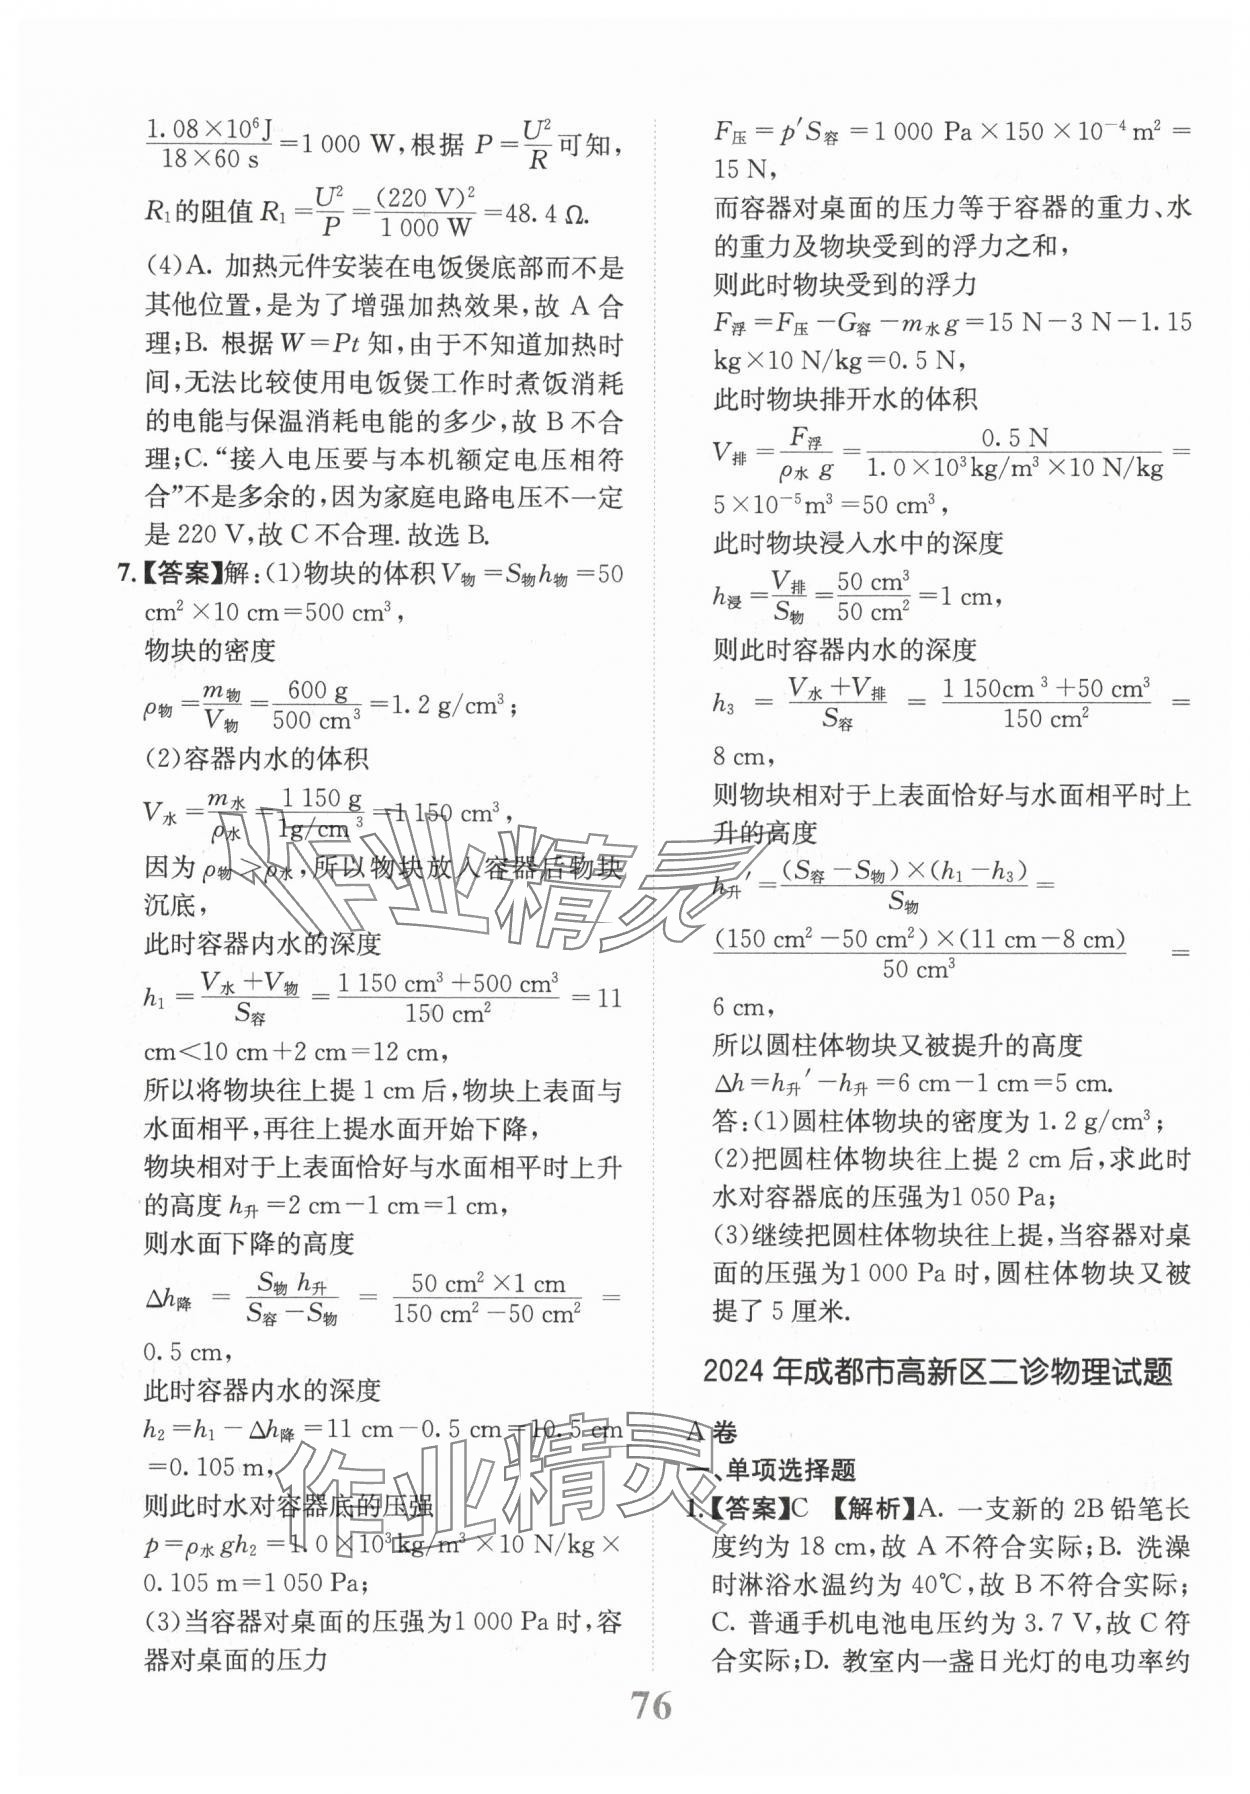 1.08×10⁶J/18×60 s=1 000 W,根据 P=U²/R可知,
R₁的阻值 R₁=U²/P=(220 V)²/1 000 W=48.4 Ω.
(4)A. 加热元件安装在电饭煲底部而不是
其他位置,是为了增强加热效果,故 A 合
理;B. 根据 W=Pt 知,由于不知道加热时
间,无法比较使用电饭煲工作时煮饭消耗
的电能与保温消耗电能的多少,故 B 不合
理;C.“接入电压要与本机额定电压相符
合”不是多余的,因为家庭电路电压不一定
是 220 V,故 C 不合理.故选 B.
7.【答案】解:(1)物块的体积 V物=S物h物=50
cm²×10 cm=500 cm³,
物块的密度
ρ物=m物/V物=600 g/500 cm³=1.2 g/cm³;
(2)容器内水的体积
V水=m水/ρ水=1 150 g/1g/cm³=1 150 cm³,
因为 ρ物>ρ水,所以物块放入容器后物块
沉底,
此时容器内水的深度
h₁=V水+V物/S容=1 150 cm³+500 cm³/150 cm²=11
cm<10 cm+2 cm=12 cm,
所以将物块往上提 1 cm 后,物块上表面与
水面相平,再往上提水面开始下降,
物块相对于上表面恰好与水面相平时上升
的高度 h升=2 cm-1 cm=1 cm,
则水面下降的高度
Δh降=S物h升/S容-S物=50 cm²×1 cm/150 cm²-50 cm²=
0.5 cm,
此时容器内水的深度
h₂=h₁-Δh降=11 cm-0.5 cm=10.5 cm
=0.105 m,
则此时水对容器底的压强
p=ρ水gh₂=1.0×10³kg/m³×10 N/kg×
0.105 m=1 050 Pa;
(3)当容器对桌面的压强为1 000 Pa 时,容
器对桌面的压力
F压=p′S容=1 000 Pa×150×10⁻⁴m²=
15 N,
而容器对桌面的压力等于容器的重力、水
的重力及物块受到的浮力之和,
则此时物块受到的浮力
F浮=F压-G容-m水g=15 N-3 N-1.15
kg×10 N/kg=0.5 N,
此时物块排开水的体积
V排=F浮/ρ水g=0.5 N/1.0×10³kg/m³×10 N/kg=
5×10⁻⁵m³=50 cm³,
此时物块浸入水中的深度
h浸=V排/S物=50 cm³/50 cm²=1 cm,
则此时容器内水的深度
h₃=V水+V排/S容=1 150cm³+50 cm³/150 cm²=
8 cm,
则物块相对于上表面恰好与水面相平时上
升的高度
h升′=(S容-S物)×(h₁-h₃)/S物=
(150 cm²-50 cm²)×(11 cm-8 cm)/50 cm³=
6 cm,
所以圆柱体物块又被提升的高度
Δh=h升′-h升=6 cm-1 cm=5 cm.
答:(1)圆柱体物块的密度为 1.2 g/cm³;
(2)把圆柱体物块往上提 2 cm 后,求此时
水对容器底的压强为1 050 Pa;
(3)继续把圆柱体物块往上提,当容器对桌
面的压强为1 000 Pa 时,圆柱体物块又被
提了 5 厘米.
2024 年成都市高新区二诊物理试题
A 卷
一、单项选择题
1.【答案】C 【解析】A. 一支新的 2B 铅笔长
度约为 18 cm,故 A 不符合实际;B. 洗澡
时淋浴水温约为 40℃,故 B 不符合实际;
C. 普通手机电池电压约为 3.7 V,故 C 符
合实际;D. 教室内一盏日光灯的电功率约
76
作业精灵
作业精灵